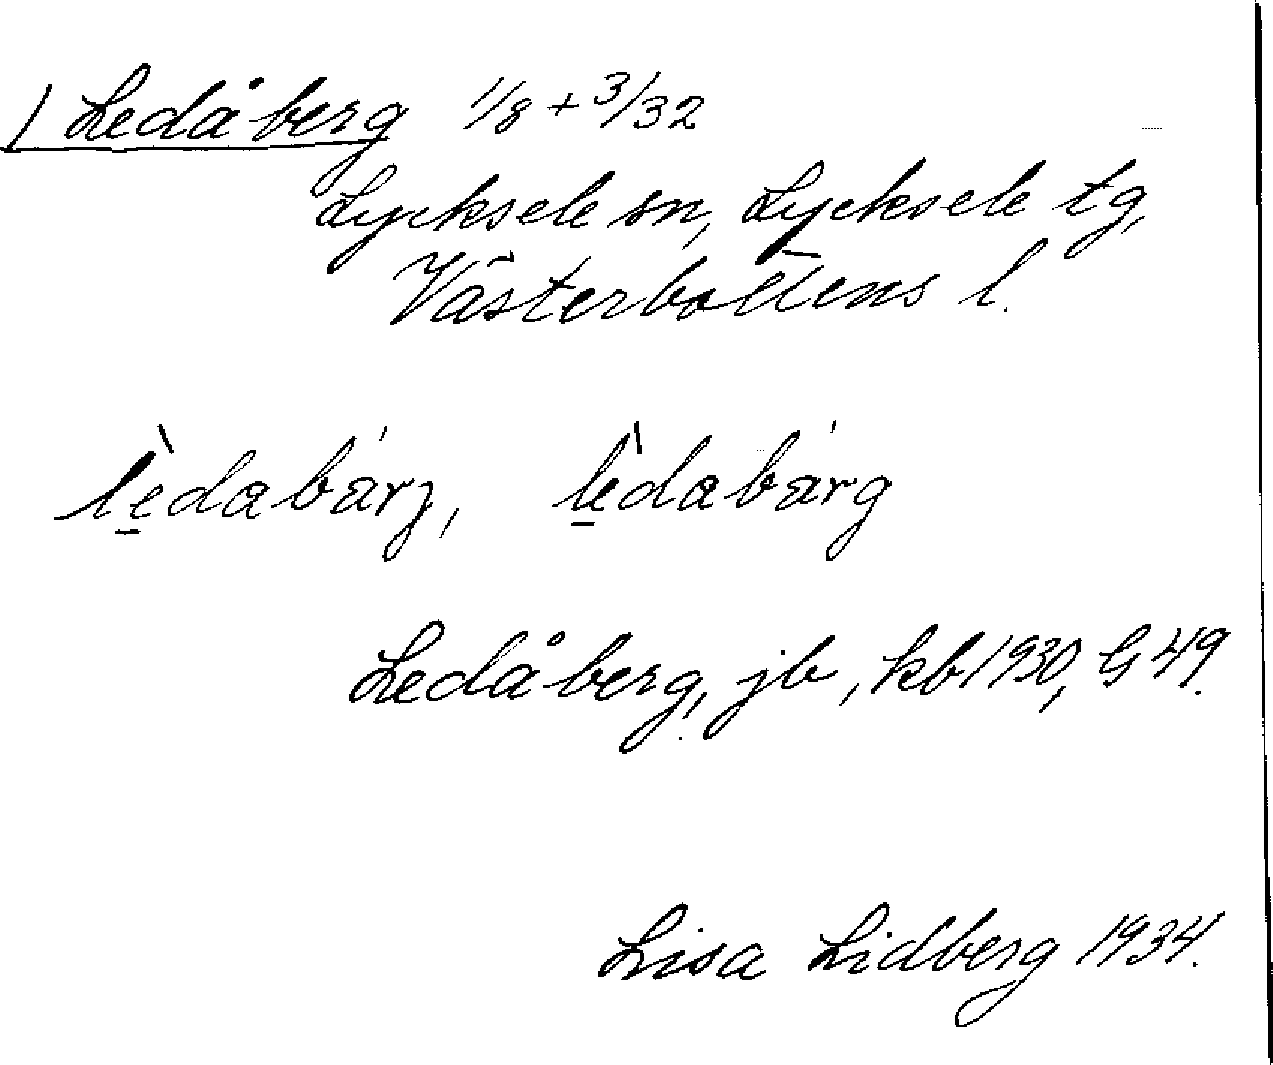 / Ledåberg 1/8 + 3/32
Lycksele sn, Lycksele tg,
Västerbottens l.
lè̠dabárj, lè̠dabárg
Ledåberg, jb, kb 1930, G 49.
Lisa Lidberg 1934.